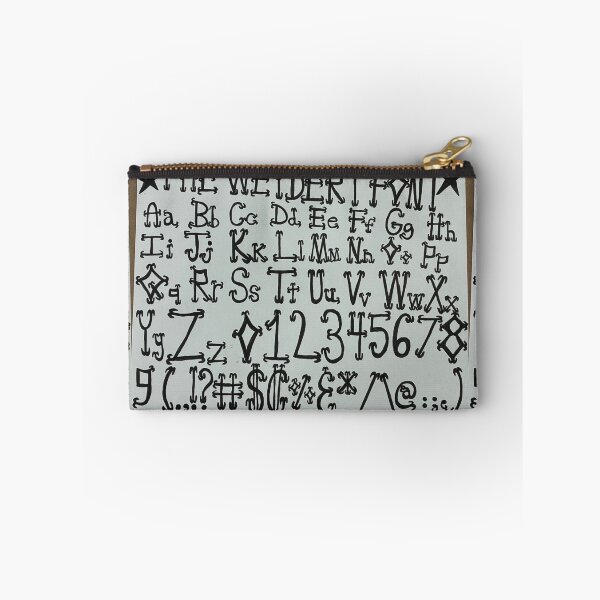 ★THE WEIDERT FONT★
Aa Bb Cc Dd Ee Ff Gg Hh
Ii Jj Kk Ll Mm Nn Oo Pp
Qq Rr Ss Tt Uu Vv Ww Xx
Yy Zz 012345678
9(.,!?#$¢%&*/\@:;)